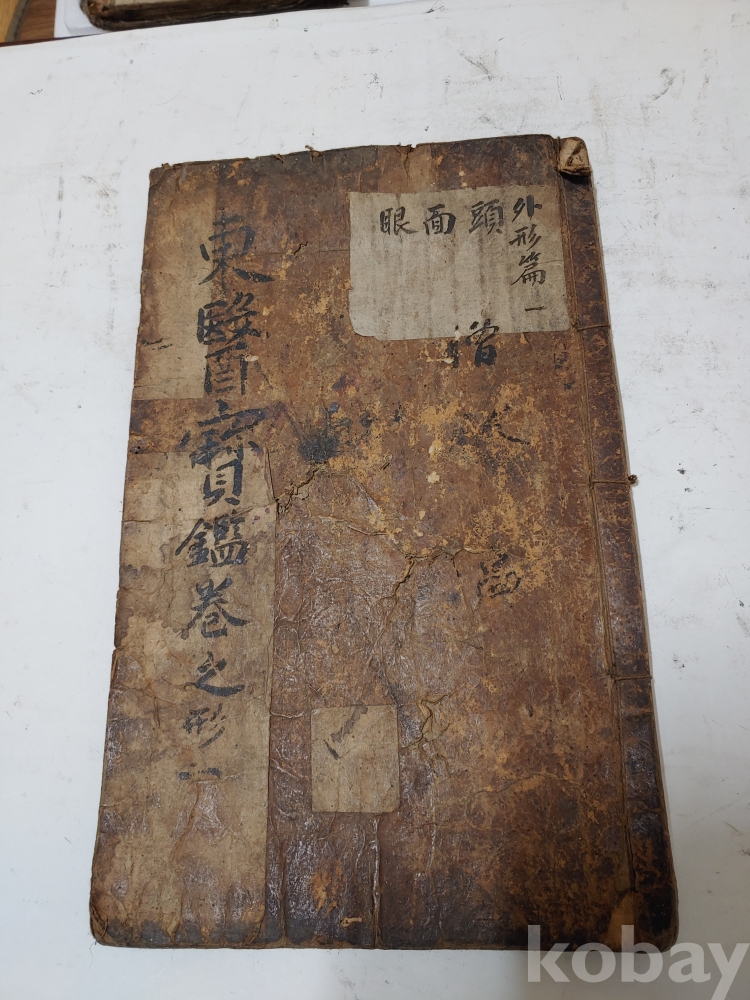 外形篇 一
頭
面
眼
東醫寶鑑卷之形一
kobay